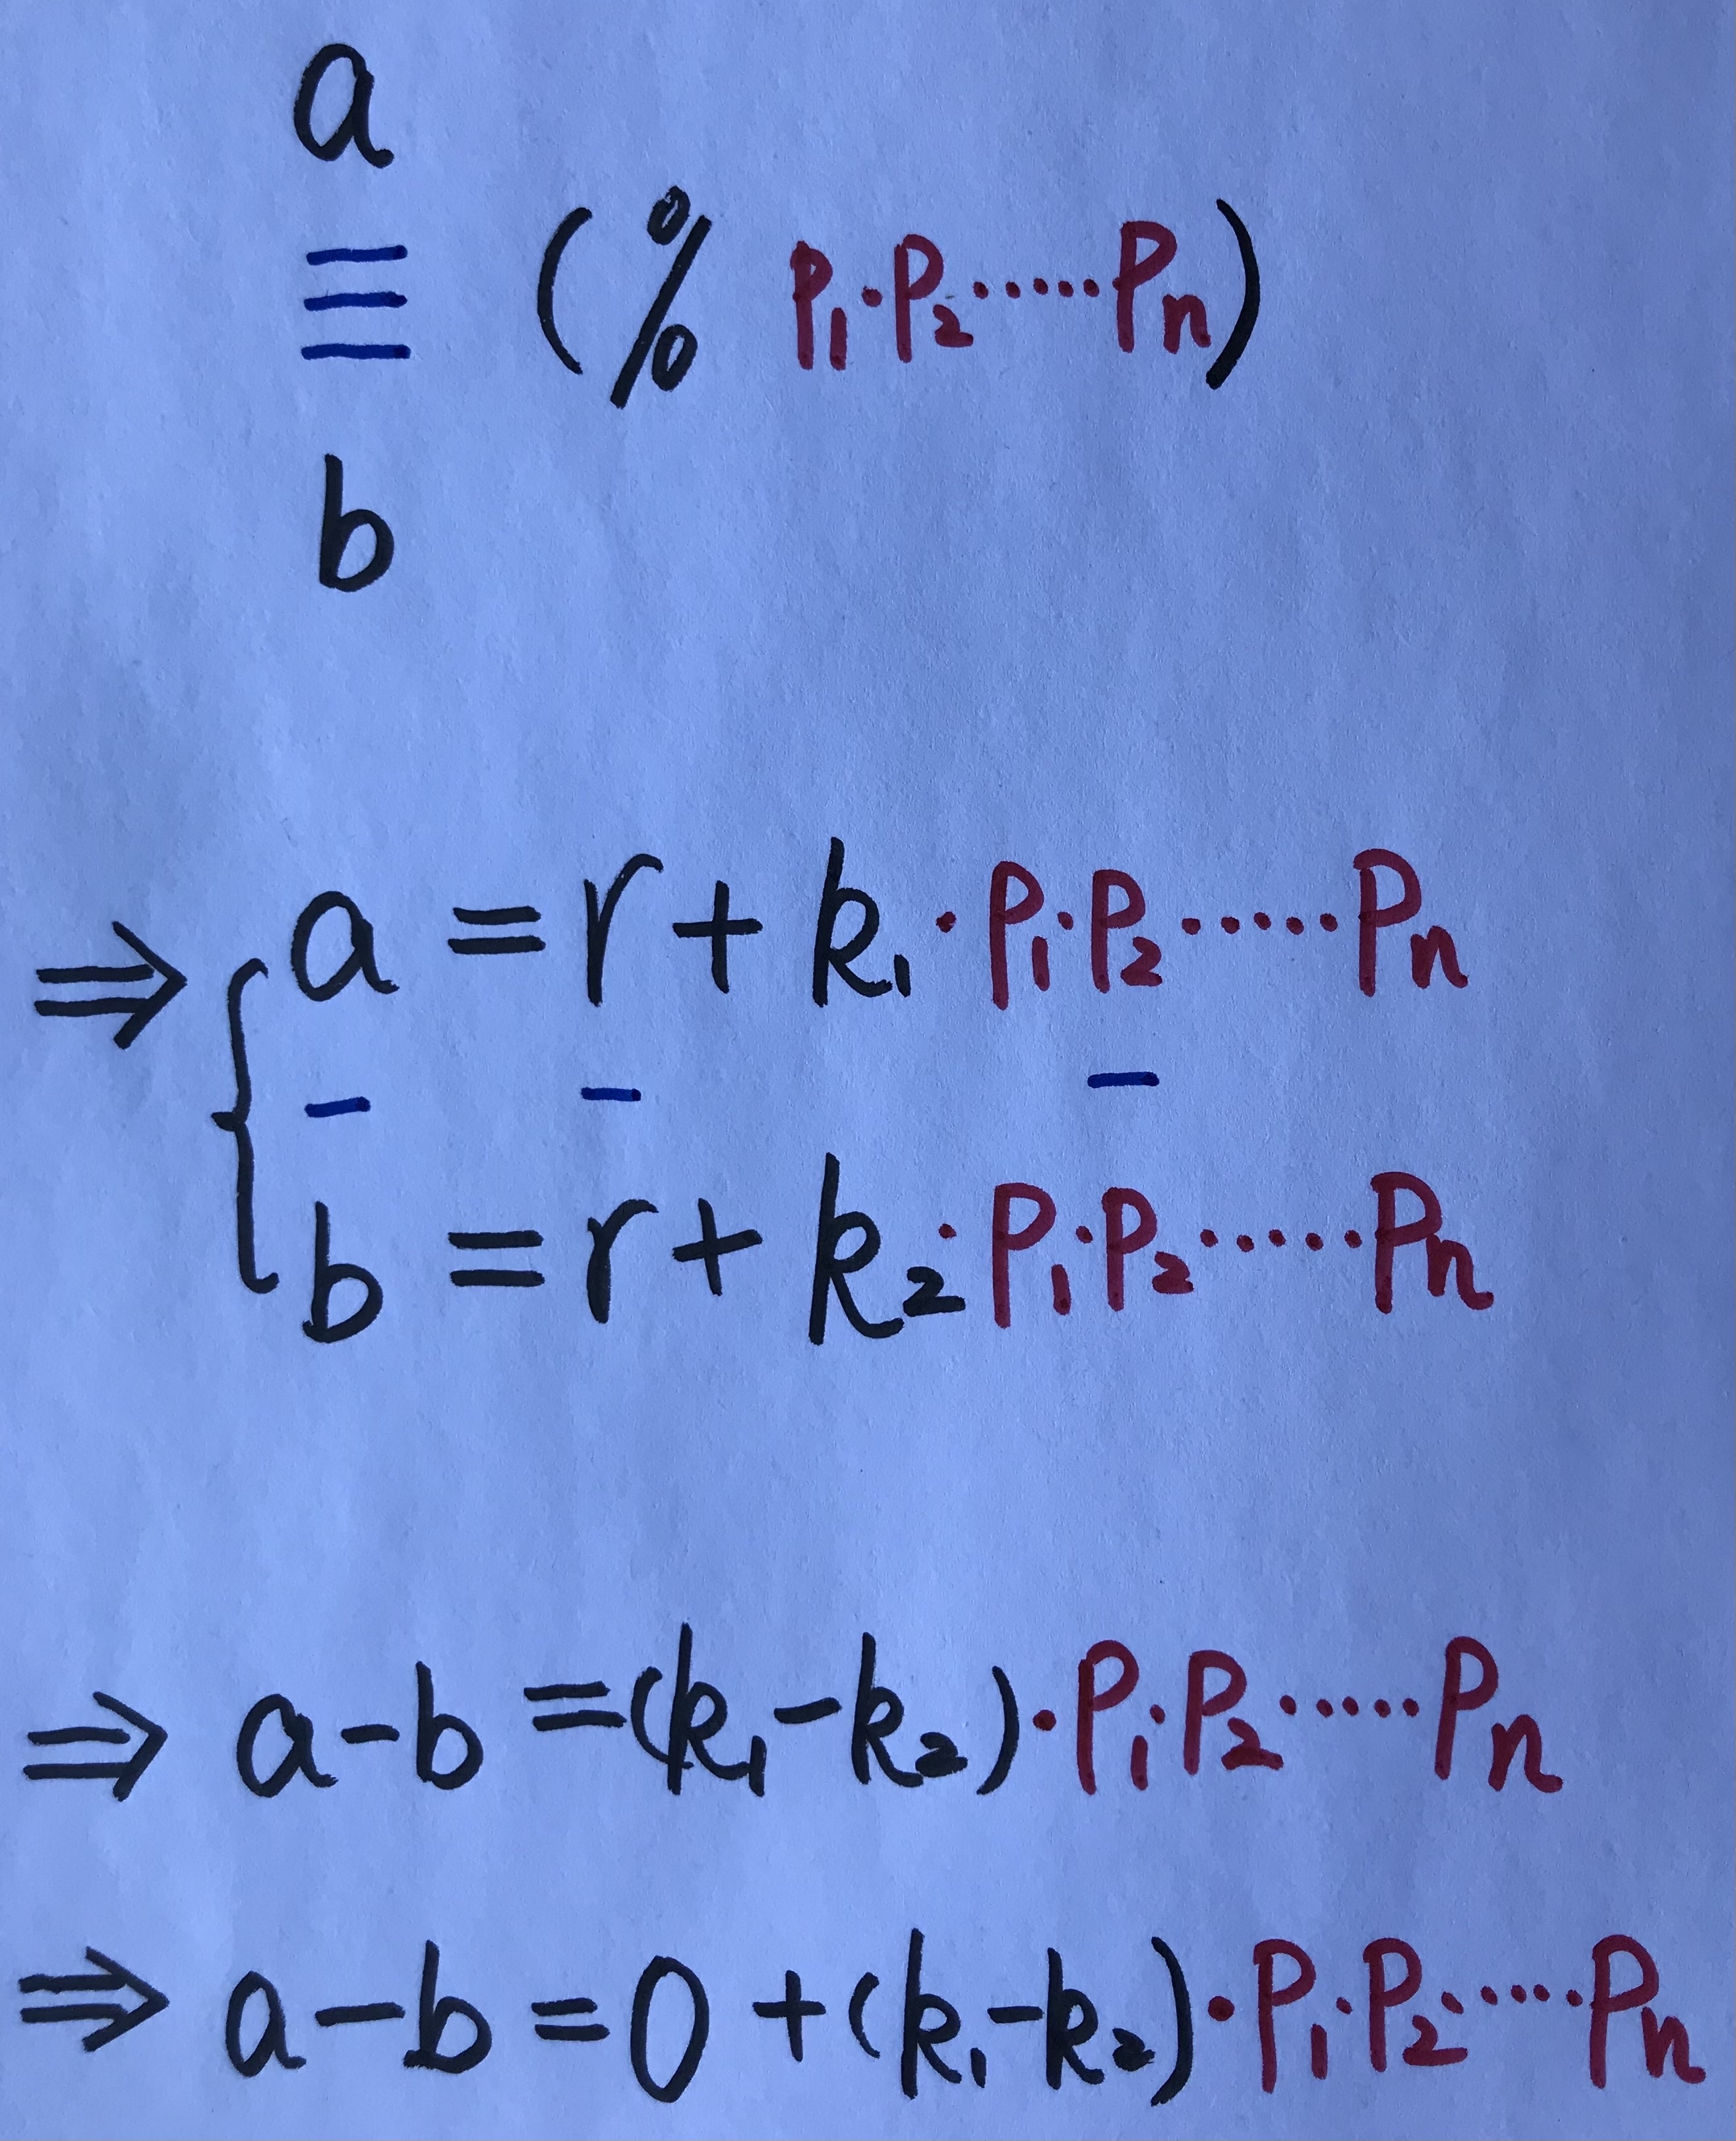 a
≡ (% p₁·p₂······pₙ)
b
⇒ { a = r + k₁·p₁·p₂······pₙ
− − −
b = r + k₂·p₁·p₂······pₙ
⇒ a-b =(k₁-k₂)·p₁·p₂······pₙ
⇒ a-b = 0 + (k₁-k₂)·p₁·p₂······pₙ